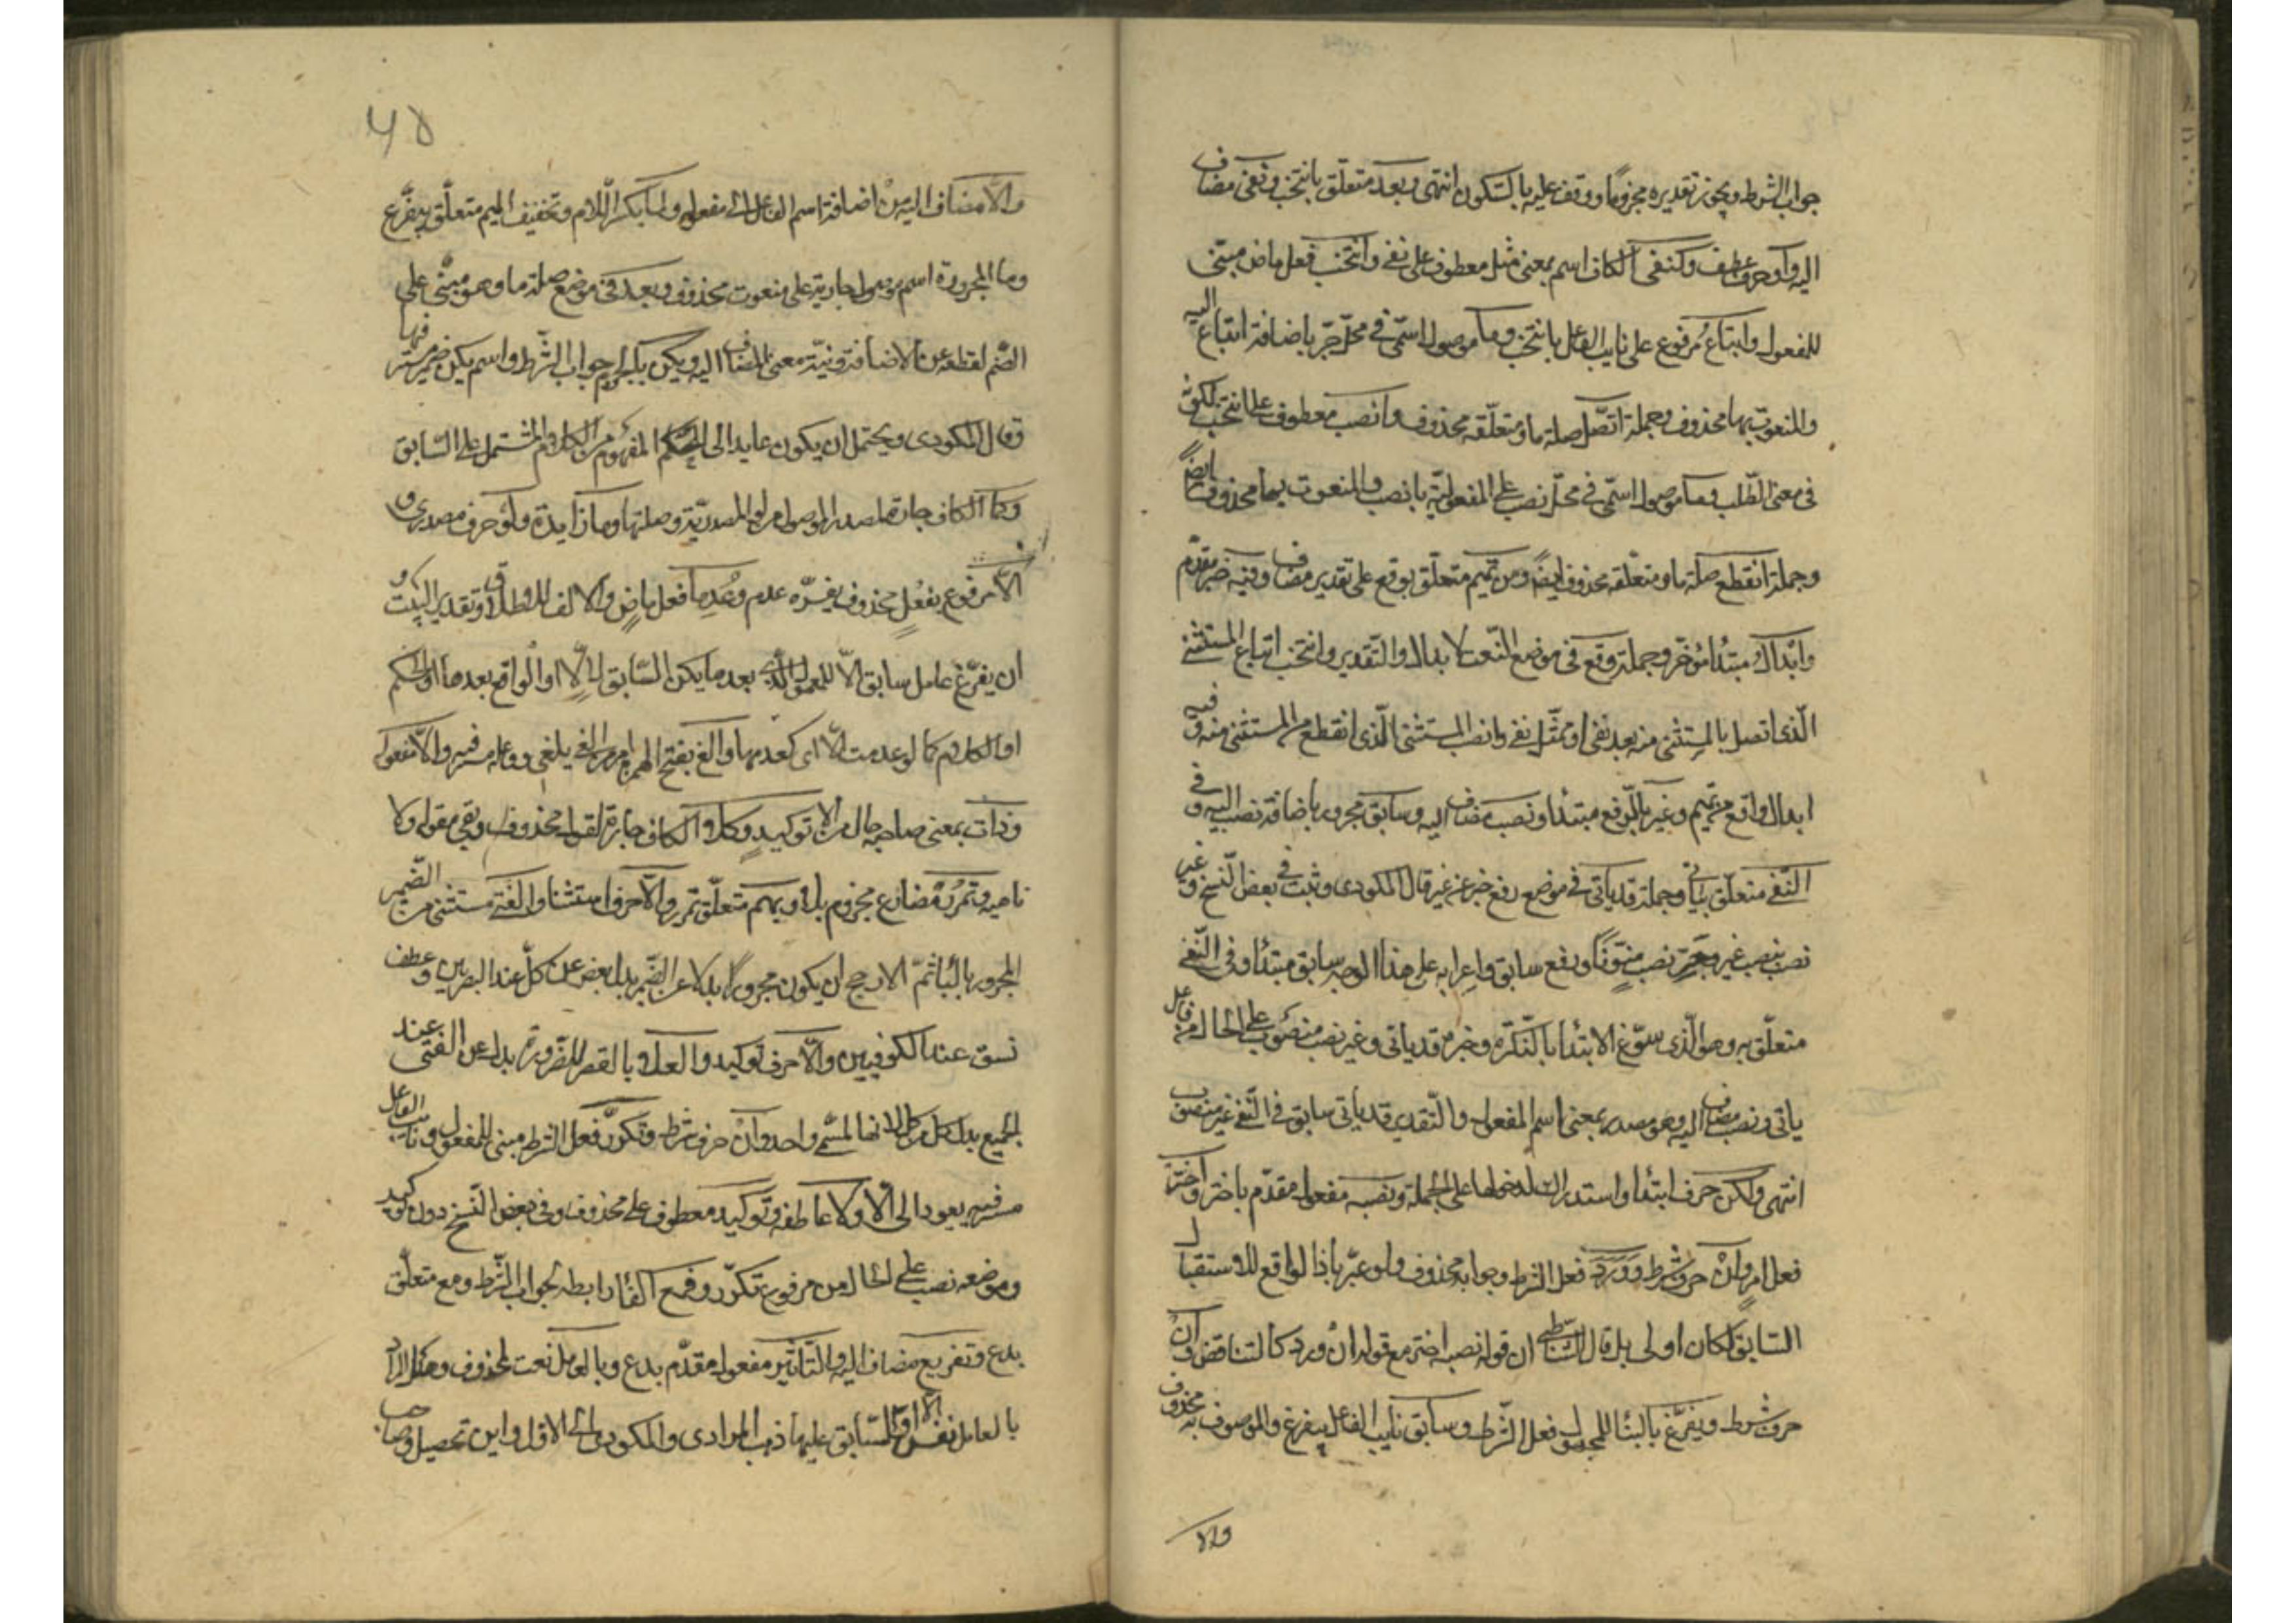 جواب الشرط ويجوز تقديره مجزوما ووقف عليه بالسكون انتهى وبعد متعلق بانتخب ونفى مضاف
اليه وأو حرف عطف وكنفى الكاف اسم بمعنى مثل معطوف على نفى وانتخب فعل ماض مبنى
للمفعول واتباع مرفوع على نايب الفاعل بانتخب وما موصول اسمى فى محل جر باضافة اتباع اليه
والمنعوت بها محذوف وجملة اتصل صلة ما ومتعلقه محذوف وانصب معطوف على انتخب لكونه
فى معنى الطلب وما موصول اسمى فى محل نصب على المفعولية بانصب والمنعوت بها محذوف ايضا
وجملة انقطع صلة ما ومتعلقه محذوف ايضا وعن تميم متعلق بوقع على تقدير مضاف وفيه خبر مقدم
وابدال مبتدأ مؤخر وجملة وقع فى موضع النعت لابدال والتقدير وانتخب اتباع المستثنى
الذى اتصل بالمستثنى منه بعد نفى او مثل نفى وانصب المستثنى الذى انقطع من المستثنى منه وفيه
ابدال واقع عن تميم وغير بالرفع مبتدأ ونصب مضاف اليه وسابق مجرور باضافة نصب اليه وفى
النفى متعلق بياتى وجملة قد ياتى فى موضع رفع خبر عن غير قال المكودى وثبت فى بعض النسخ وغير
نصب بنصب غير وجر نصب منونا ورفع سابق واعرابه على هذا الوجه سابق مبتدأ وفى النفى
متعلق به وهو الذى سوغ الابتدا بالنكرة وخبره قد ياتى وغير نصب منصوب على الحال من فاعل
ياتى ونصب مضاف اليه وهو مصدر بمعنى اسم المفعول والتقدير قد ياتى سابق فى النفى غير منصوب
انتهى ولكن حرف ابتدا واستدراك لدخولها على الجملة ونصبه مفعول مقدم باختر واختر
فعل امر وان حرف شرط وورد فعل الشرط وجوابه محذوف ولو عبر باذا لواقع للاستقبال
السابق لكان اولى بل قال الشاطبى ان قوله نصبه اختر مع قوله ان ورد كالتناقض وان
حرف شرط ويفرغ بالبنا للمجهول فعل الشرط وسابق نايب الفاعل بيفرغ والموصوف به محذوف
والا
والا مضاف اليه من اضافة اسم الفاعل الى مفعوله ولما بكسر اللام وتخفيف الميم متعلق بيفرغ
وما المجرورة اسم موصول جارية على منعوت محذوف وبعد فى موضع صلة ما وهو مبنى على
الضم لقطعه عن الاضافة ونية معنى المضاف اليه ويكن بالجزم جواب الشرط واسم يكن ضمير مستتر فيها
وقال المكودى ويحتمل ان يكون عايدا الى الحكم المفهوم من الكلام المشتمل على السابق
وكما الكاف جارة لمصدر الموصول من لو المصدرية وصلتها وما زايدة ولو حرف مصدرى و
الا مرفوع بفعل محذوف يفسره عدم وعدما فعل ماض والالف للاطلاق وتقدير البيت
ان يفرغ عامل سابق الا للمعمول الذى بعدها يكن السابق لالا او الواقع بعدها او الحكم
او الكلام كما لو عدمت الا اى كعدمها والغ بفتح الهمزة امر من الغى يلغى وفاعله مستتر فيه والا مفعوله
وذات بمعنى صاحبه حال من الا توكيد وكلا الكاف جارة لقول محذوف وبقى مقوله ولا
ناهيه وتمرر مضارع مجزوم بلا وبهم متعلق بتمرر والا حرف استثنا والفتى مستثنى من الضمير
المجرور بالبا ثم الارجح ان يكون مجرورا بدلا عن الضمير بدل بعض عن كل عند البصريين وعطف
نسق عند الكوفيين والا حرف توكيد والعلا بالقصر للضرورة بدل عن الفتى عند
الجميع بدل كل من كل لانهما لمسمى واحد وان حرف شرط وتكرر فعل الشرط مبنى للمفعول ونايب الفاعل
مستتر فيه يعود الى الا ولا عاطفة وتوكيد معطوف على محذوف وفى بعض النسخ دون توكيد
وموضعه نصب على الحال من مرفوع تكرر وفمع الفا رابطة لجواب الشرط ومع متعلق
بدع وتفريغ مضاف اليه والتاثير مفعول مقدم بدع وبالعامل نعت لمحذوف وهل المراد
بالعامل نفس الا او السابق عليها ذهب المرادى والمكودى الى الاول وابن